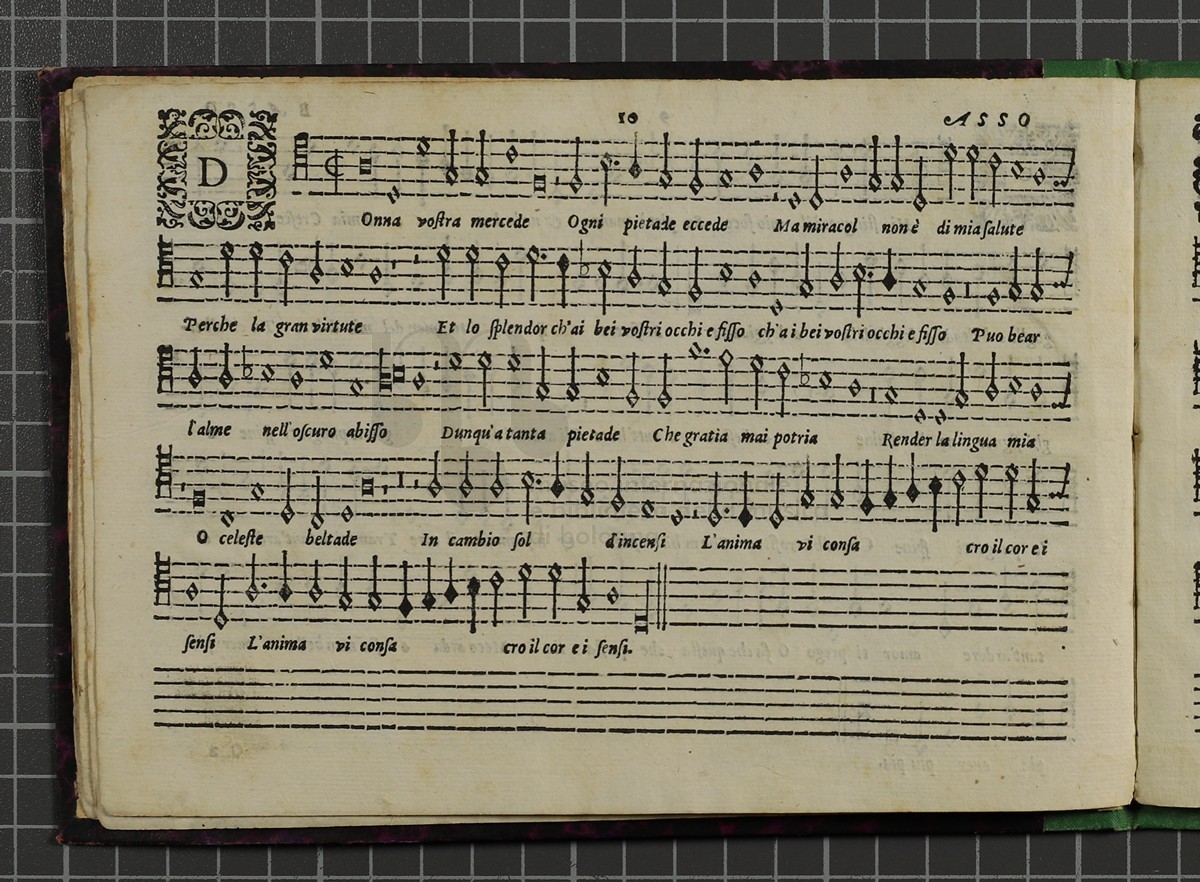 10 ASSO
D
Onna vostra mercede Ogni pietade eccede Ma miracol non è di mia salute
Perche la gran virtute Et lo splendor ch'ai bei vostri occhi e fisso ch'a i bei vostri occhi e fisso Puo bear
l'alme nell'oscuro abisso Dunqu'a tanta pietade Che gratia mai potria Render la lingua mia
O celeste beltade In cambio sol d'incensi L'anima vi consa cro il cor e i
sensi L'anima vi consa cro il cor e i sensi.